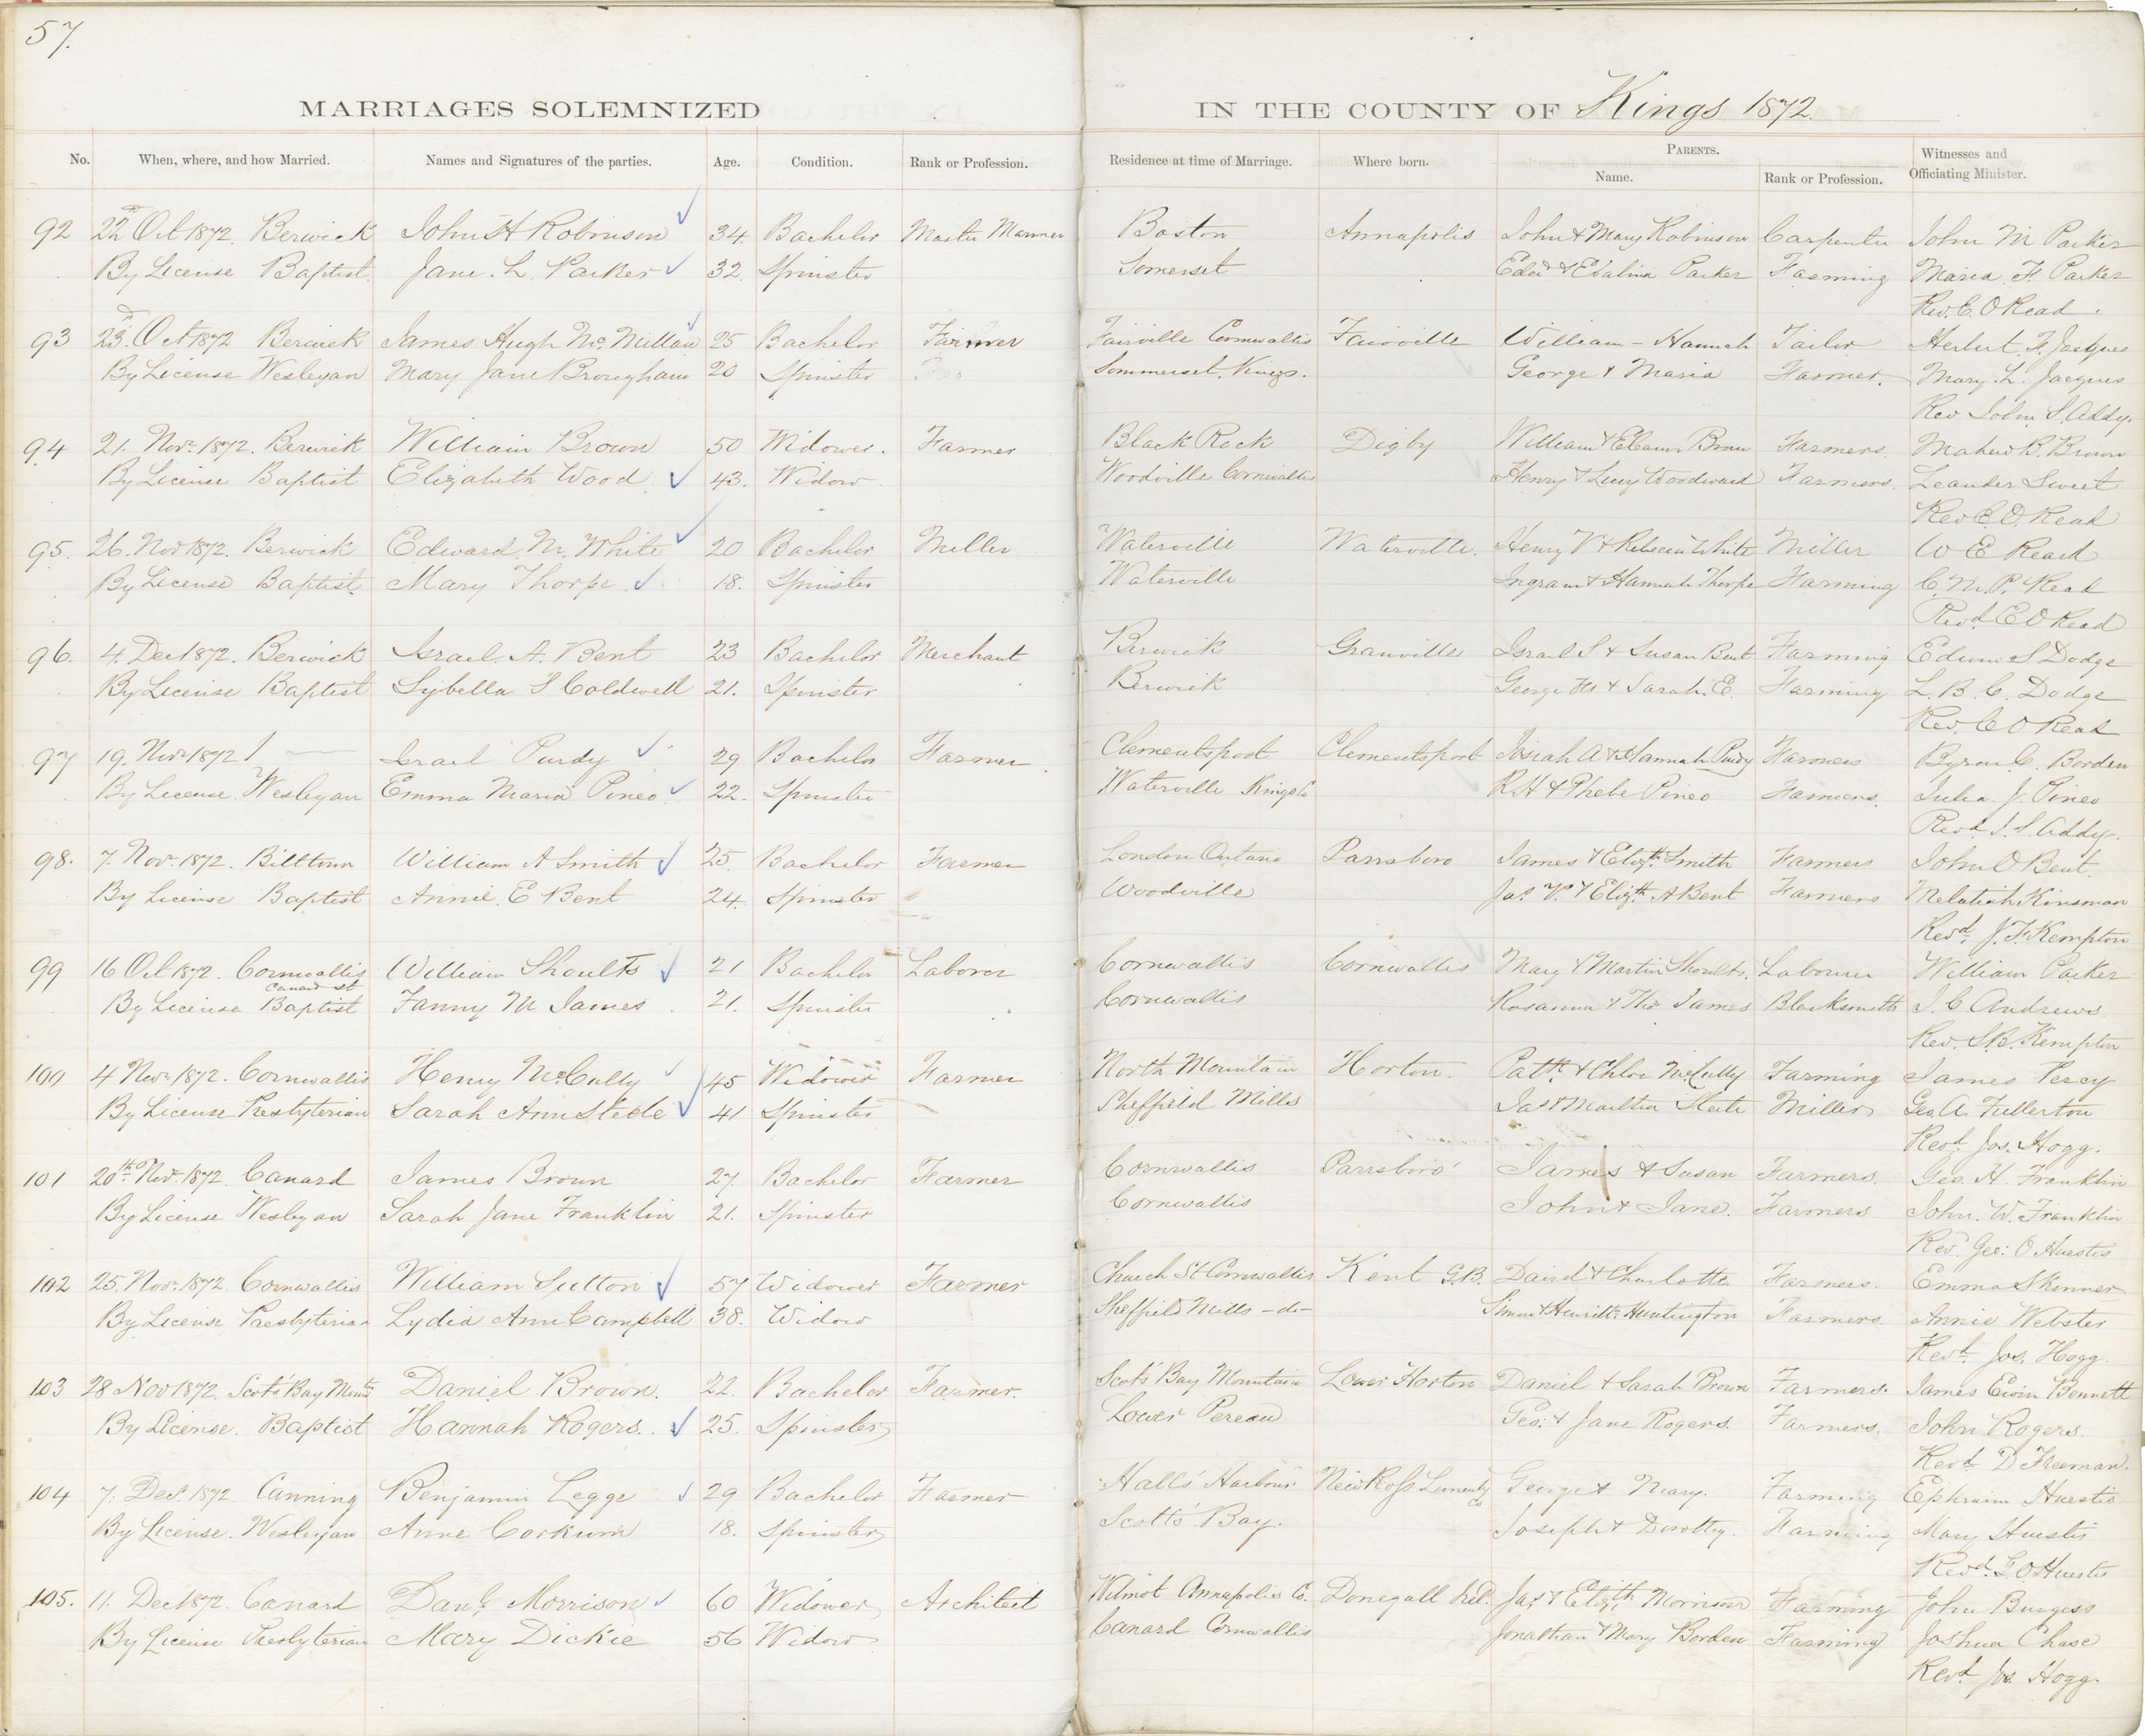 57.
MARRIAGES SOLEMNIZED IN THE COUNTY OF Kings 1872.
No. When, where, and how Married. Names and Signatures of the parties. Age. Condition. Rank or Profession. Residence at time of Marriage. Where born. PARENTS. Witnesses and
Name. Rank or Profession. Officiating Minister.
92 22d Oct 1872. Berwick John H Robinson 34. Bachelor Master Mariner Boston Annapolis John & Mary Robinson Carpenter John M Parker
By License Baptist. Jane. L. Parker 32. Spinster Somerset Edwd & Parker Farming Maria F. Parker
Rev. E. O Read.
93 23d. Oct 1872 Berwick James Hugh McMillan 25 Bachelor Farmer Fairville Cornwallis Fairville William - Hannah Tailor Herbert. F. Jacques
By License Wesleyan Mary Jane Brougham 20 Spinster Sommerset. Kings. George & Maria Farmer. Mary. L. Jacques
Rev John S. Addy.
94 21. Novr 1872. Berwick William Brown 50 Widower. Farmer Black Rock Digby William & Eleanor Brown Farmers. B. Brown
By License Baptist Elizabeth Wood 43. Widow Woodville Cornwallis Henry & Lucy Woodward Farmers. Leander Sweet
Rev E. O. Read
95. 26. Nov 1872. Berwick Edward. M. White 20 Bachelor Miller Waterville Waterville. Henry V & Rebecca White Miller W E Read
By License Baptist. Mary Thorpe 18. Spinster Waterville Ingram & Hannah Thorpe Farming C. M. P. Read
Revd. E O Read
96. 4. Dec 1872. Berwick Israel. A. Bent 23 Bachelor Merchant Berwick Granville Israel S & Susan Bent Farming Edwin S Dodge
By License Baptist Sybella S Coldwell 21. Spinster Berwick George & Sarah. E. Farming L. B. C. Dodge
Rev. E O Read
97 19. Novr 1872 Israel Purdy 29 Bachelor Farmer Clementsport Clementsport Josiah A & Hannah Purdy Farmers Byron C. Borden
By License. Wesleyan Emma Maria Pineo 22. Spinster Waterville Kings Co R H & Phebe Pineo Farmers. Julia. J. Pineo
Revd. J. S. Addy.
98. 7. Novr 1872. Billtown William A Smith 25. Bachelor Farmer London Ontario Parrsboro James & Elizth. Smith Farmers John O Bent.
By License Baptist Annie. E Bent 24. Spinster Woodville Jas. V. & Elizth. A Bent Farmers Melatiah Kinsman
Revd. J. F. Kempton
99 16 Oct 1872. Cornwallis William Shoults 21 Bachelor Laborer Cornwallis Cornwallis Mary & Martin Shoults. Labourer William Parker
Canard St
By License Baptist Fanny M James 21. Spinster Cornwallis Rosanna & Thos James Blacksmith J. C Andrews.
Rev. S. B. Kempton
100 4 Novr 1872. Cornwallis Henry McCully 45 Widower Farmer North Mountain Horton. Patk. & Chloe McCully Farming James Percy
By License Presbyterian Sarah Ann Steele 41 Spinster Sheffield Mills Jas & Steele Miller Geo. A. Fullerton
Revd. Jos. Hogg.
101 20th Novr. 1872. Canard James Brown 27. Bachelor Farmer Cornwallis Parrsboro' James & Susan Farmers. Geo. H. Franklin
By License Wesleyan Sarah Jane Franklin 21. Spinster Cornwallis John & Jane. Farmers John. W. Franklin
Revd. Geo: O Huestis
102 25. Novr. 1872. Cornwallis William Sutton 57 Widower Farmer Church St Cornwallis Kent G.B. David & Charlotte Farmers. Emma Skinner
By License Presbyterian Lydia Ann Campbell 38. Widow Sheffield Mills -do- Simon & Henrittr Huntington Farmers. Annie Webster
Revd. Jos. Hogg.
103 28 Nov 1872. Scots' Bay Mount Daniel Brown. 22. Bachelor Farmer. Scots' Bay Mountain Lower Horton Daniel & Sarah Brown Farmers. James Ewin Bennett
By License. Baptist Hannah Rogers. 25. Spinster Lower Pereau Geo: & Jane Rogers. Farmers. John Rogers.
Revd D Freeman.
104 7. Decr. 1872. Canning Benjamin Legge 29 Bachelor Farmer Halls' Harbour New Ross Lunenbg Co George & Mary. Farming Ephraim Huestis
By License. Wesleyan Anne Corkum 18. Spinster Scotts' Bay. Joseph & Dorothy. Farming Mary Huestis
Revd. G O Huestis
105. 11. Dec 1872. Canard Danl. Morrison 60 Widower Architect Wilmot Annapolis Co. Donegall Irel. Jas. & Elizth. Morrison Farming John Burgess
By License Presbyterian Mary Dickie 56 Widow Canard Cornwallis Jonathan & Mary Borden Farming Joshua Chase
Revd. Jos. Hogg.